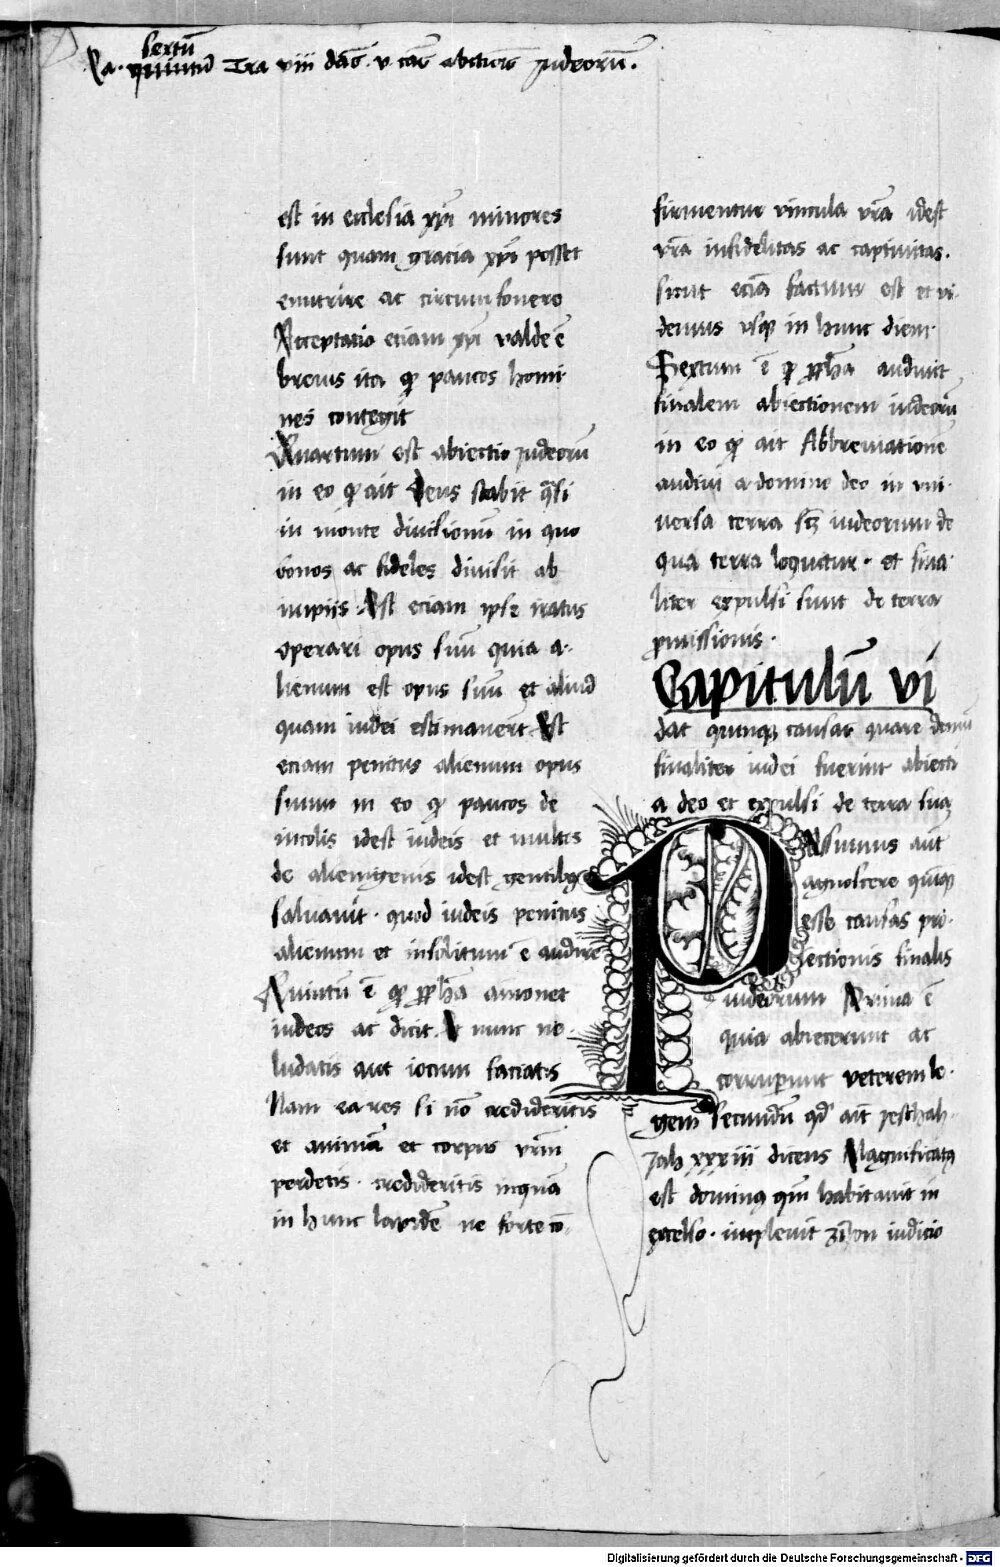 sextũ
Ca. quintũ Tra viii dãs v cãs abictiõis Judeorũ.
est in ecclesia xp̃i minores
sunt quam gracia xp̃i posset
enutrire ac circumfovere
Acceptatio eciam xp̃i valde ẽ
brevis ita qͥ paucos homi
nes contegit
Quartum est abiectio Judeorũ
in eo qͥ ait Deus stabit q̃si
in monte divisionũ in quo
bonos ac fideles divisit ab
impiis Est eciam ipse iratus
operari opus suũ quia a-
lienum est opus suũ et aliud
quam iudei estimaverũt Est
eciam penitus alienum opus
suum in eo qͥ paucos de
incolis idest iudeis et multos
de alienigenis idest gentilibus
salvavit . quod iudeis penitus
alienum et insolitum ẽ audire
Quintũ ẽ qͥ pp̃ha amonet
iudeos ac dicit. Et nunc no-
ludatis aut iocum faciatis
Nam ea res si nõ credideritis
et animã et corpus vr̃m
perdetis . credideritis inquã
in hunc lapidẽ ne forte cõ-
firmentur vincula vr̃a idest
vr̃a infidelitas ac captivitas.
sicut eciã factum est et vi-
demus usqꝫ in hunc diem.
Sextum ẽ qͥ pp̃ha audivit
finalem abiectionem iudeorũ
in eo qͥ ait Abbreviationẽ
audivi a domino deo in uni
versa terra scꝫ iudeorum de
qua terra loquitur . et fina-
liter expulsi sunt de terra
promissionis.
Capitulũ vi
dat quinqꝫ causas quare demũ
finaliter iudei fuerint abiecti
a deo et expulsi de terra sua
POssumus aũt
agnoscere quinqꝫ
esse causas pro-
iectionis finalis
iudeorum Prima ẽ
quia abiecerunt ac
corruperunt veterem le-
gem secundũ qd̃ ait Jeschah-
Jah xxxiii dicens Magnificatus
est dominus qm̃ habitavit in
excelso . implevit Zion iudicio
Digitalisierung gefördert durch die Deutsche Forschungsgemeinschaft - DFG